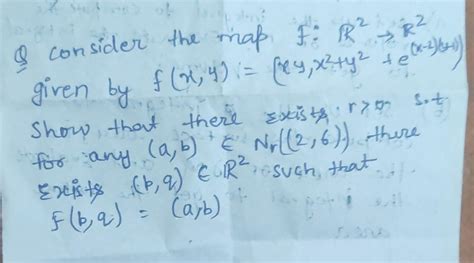 Q consider the map f: ℝ² → ℝ²
given by f(x,y) := (xy, x²+y² + e^(x-2)(y-1))
Show that there exists r>0 s.t
for any (a,b) ∈ Nr((2,6)) there
exists (p,q) ∈ ℝ² such that
f(p,q) = (a,b)